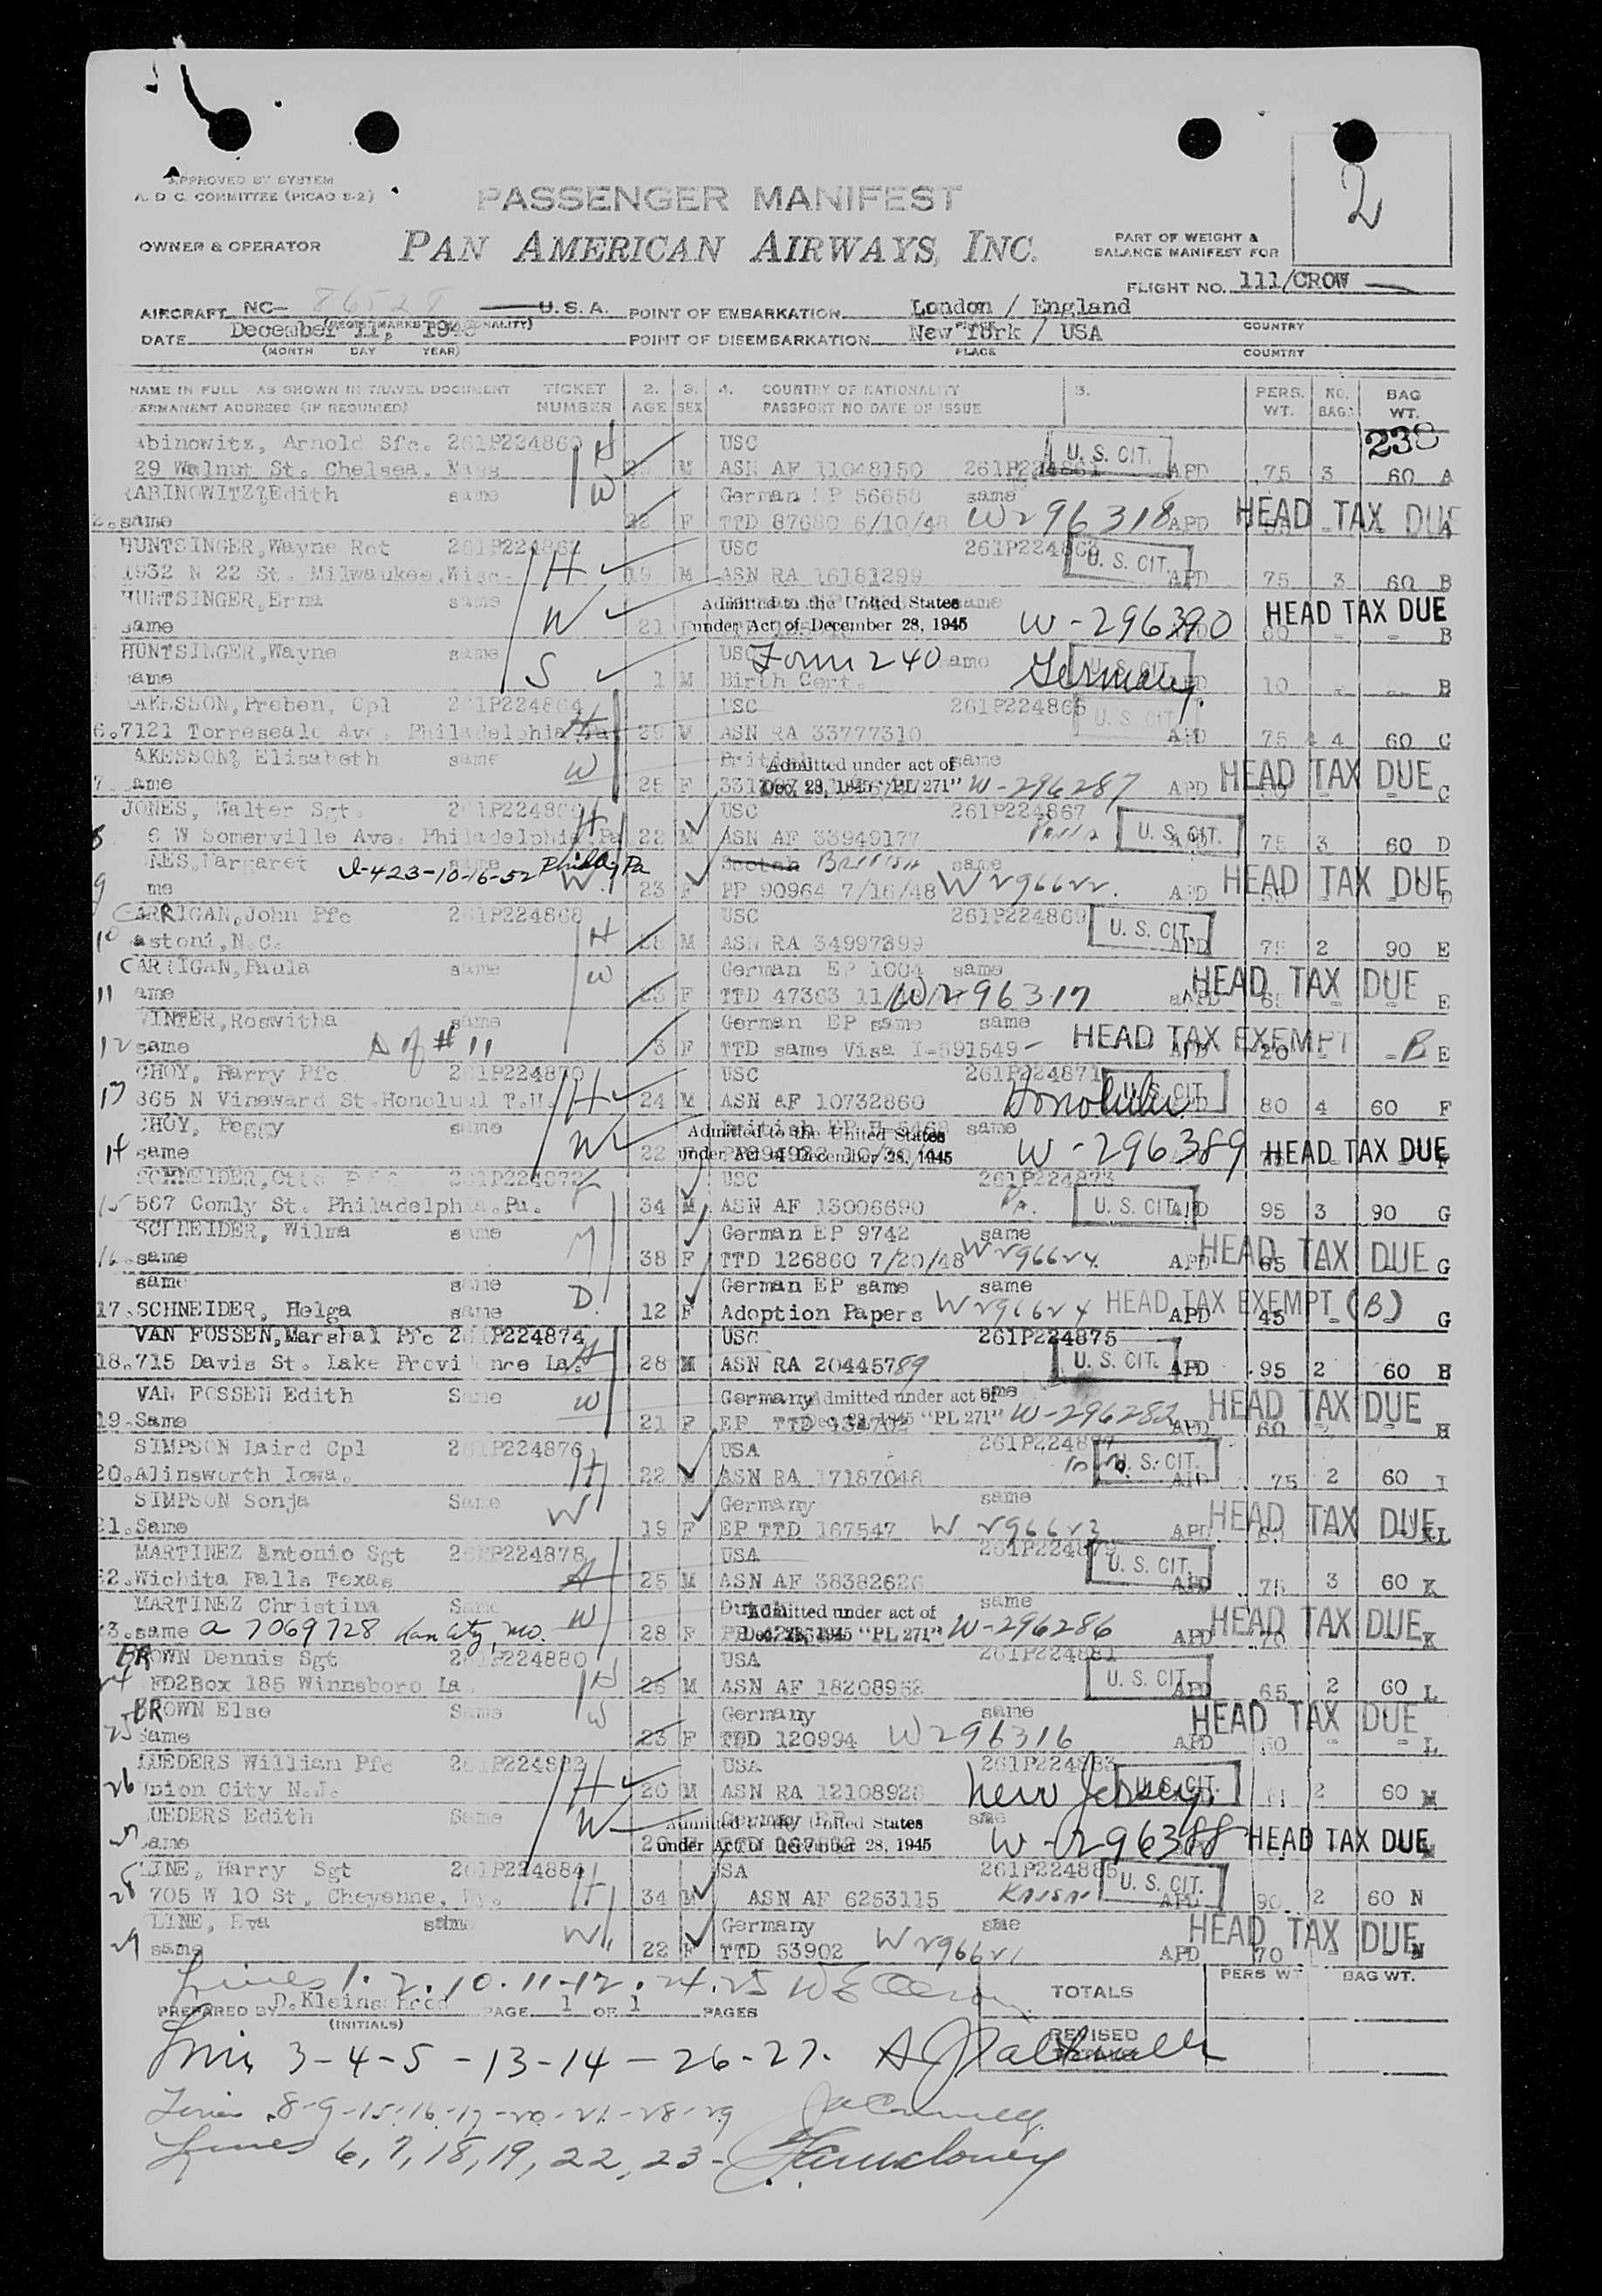 APPROVED BY SYSTEM
A. D. C. COMMITTEE (PICAO S-2)
PASSENGER MANIFEST
2
OWNER & OPERATOR
PAN AMERICAN AIRWAYS, INC.
PART OF WEIGHT &
BALANCE MANIFEST FOR
FLIGHT NO. 111/CROW
AIRCRAFT NC- 86528 U.S.A. POINT OF EMBARKATION London / England
DATE December 11, 1948 POINT OF DISEMBARKATION New York / USA
(MONTH DAY YEAR) PLACE COUNTRY
NAME IN FULL AS SHOWN IN TRAVEL DOCUMENT TICKET 2. 3. 4. COUNTRY OF NATIONALITY 5. PERS. NO. BAG
PERMANENT ADDRESS (IF REQUIRED) NUMBER AGE SEX PASSPORT NO DATE OF ISSUE WT. BAGS WT.
abinowitz, Arnold Sfc. 261P224860 H USC U. S. CIT. 238
29 Walnut St. Chelsea. Mass M ASN AF 11048150 261P224861 APD 75 3 60 A
RABINOWITZ, Edith same W German EP 56658 same
2. same 22 F TTD 87680 6/10/48 W296318 APD HEAD TAX DUE A
HUNTSINGER, Wayne Rct 261P224862 USC 261P224863 U. S. CIT.
1932 N 22 St. Milwaukee, Wisc. H 19 M ASN RA 16181299 APD 75 3 60 B
HUNTSINGER, Erna same Admitted to the United States same
same W 21 under Act of December 28, 1945 W-296390 HEAD TAX DUE B
HUNTSINGER, Wayne same USC Form 240 same U. S. CIT.
ame S 1 M Birth Cert. Germany 10 B
AKESSON, Preben, Cpl 261P224864 USC 261P224865 U. S. CIT.
6. 7121 Torreseale Ave. Philadelphia Pa H 29 M ASN RA 33777310 APD 75 4 60 C
AKESSON, Elisabeth same British same
7. ame W 25 F Admitted under act of Dec. 28, 1945 "PL 271" W-296287 APD HEAD TAX DUE C
JONES, Walter Sgt. 261P22486 USC 261P224867
8 6 W Somerville Ave. Philadelphia Pa H 22 M ASN AF 33949177 U. S. CIT. 75 3 60 D
NES, Margaret same Scotch British same
9 me I-423-10-16-52 Phila, Pa W. 23 F PP 90964 7/16/48 W296622 APD HEAD TAX DUE D
CARRIGAN, John Pfc 261P224868 USC 261P224869 U. S. CIT.
10 astoni, N.C. H 28 M ASN RA 34997899 APD 75 2 90 E
CARRIGAN, Paula same W German EP 1004 same
11 ame 23 F TTD 47363 W296317 APD HEAD TAX DUE E
WINTER, Roswitha same German EP same same
12 same D of #11 3 F TTD same Visa I-591549 HEAD TAX EXEMPT APD 20 - B E
CHOY, Harry Pfc 261P224870 USC 261P224871 U. S. CIT.
13 865 N Vineward St. Honolulu T.H. H 24 M ASN AF 10732860 Honolulu 80 4 60 F
CHOY, Peggy same British EP same
14 same W 22 Admitted to the United States under Act of December 28, 1945 W-296389 HEAD TAX DUE F
SCHNEIDER, Otto Pfc 261P224872 USC 261P224873
15 567 Comly St. Philadelphia. Pa. 34 M ASN AF 13006690 Pa. U. S. CIT. 95 3 90 G
SCHNEIDER, Wilma same German EP 9742 same
16. same 38 F TTD 126860 7/20/48 W296624 APD 65 HEAD TAX DUE G
same same D. German EP same same
17. SCHNEIDER, Helga same 12 F Adoption Papers W296624 HEAD TAX EXEMPT (B) APD 45 - G
VAN FOSSEN, Marshal Pfc 261P224874 USC 261P224875
18. 715 Davis St. Lake Providence La. H 28 M ASN RA 20445789 U. S. CIT. APD 95 2 60 H
VAN FOSSEN Edith Same Germany same
19. Same W 21 F EP TTD 134702 Admitted under act of Dec. 28, 1945 "PL 271" W-296282 APD 60 HEAD TAX DUE H
SIMPSON Laird Cpl 261P224876 USA
20. Alinsworth Iowa. H 22 ASN RA 17187048 Iowa. U. S. CIT. 75 2 60 I
SIMPSON Sonja Same Germany same
21. Same W 19 F EP TTD 167547 W296623 APD HEAD TAX DUE
MARTINEZ Antonio Sgt 261P224878 USA 261P224879 U. S. CIT.
22. Wichita Falls Texas H 25 M ASN AF 38382626 APD 75 3 60 K
MARTINEZ Christina Same Dutch same
23. same a 7069728 Kan City, Mo. W 28 F Admitted under act of Dec. 28, 1945 "PL 271" W-296286 APD HEAD TAX DUE K
BROWN Dennis Sgt 261P224880 USA 261P224881
24 FD2Box 185 Winnsboro La H 26 M ASN AF 18208958 U. S. CIT. APD 65 2 60 L
BROWN Else Same Germany same
25 Same W 23 F TTD 120994 W296316 APD HEAD TAX DUE L
LUEDERS William Pfc 261P224882 USA 261P224883
26 Union City N.J. H 20 M ASN RA 12108928 New Jersey U. S. CIT. 2 60 M
LUEDERS Edith Same Germany EP same
same W Admitted to the United States under Act of December 28, 1945 W-296388 HEAD TAX DUE
LINE, Harry Sgt 261P224884 USA 261P224885
28 705 W 10 St, Cheyenne, Wy. H 34 M ASN AF 6253115 Kansas U. S. CIT. APD 90 2 60 N
LINE, Eva same Germany same
29 same W 22 F TTD 53902 W296621 APD 70 HEAD TAX DUE N
Lines 1. 2. 10. 11-12. 24. 25 TOTALS PERS WT BAG WT.
PREPARED BY D. Kleinschrod PAGE 1 OF 1 PAGES
(INITIALS) REVISED
Lines 3-4-5-13-14-26-27.
Lines 8-9-15-16-17-20-21-28-29
Lines 6, 7, 18, 19, 22, 23-